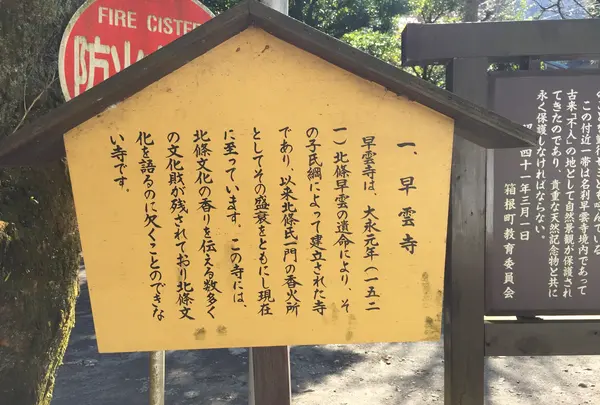 FIRE CISTER
防火
一、早雲寺
早雲寺は、大永元年（一五二
一）北條早雲の遺命により、そ
の子氏綱によって建立された寺
であり、以来北條氏一門の香火所
としてその盛衰をともにし現在
に至っています。この寺には、
北條文化の香りを伝える数多く
の文化財が残されており北條文
化を語るのに欠くことのできな
い寺です。
この付近一帯は名刹早雲寺境内であって
古来「不人」の地として自然景観が保護され
てきたのであり、貴重な天然記念物と共に
永く保護しなければならない。
四十一年三月一日
箱根町教育委員会